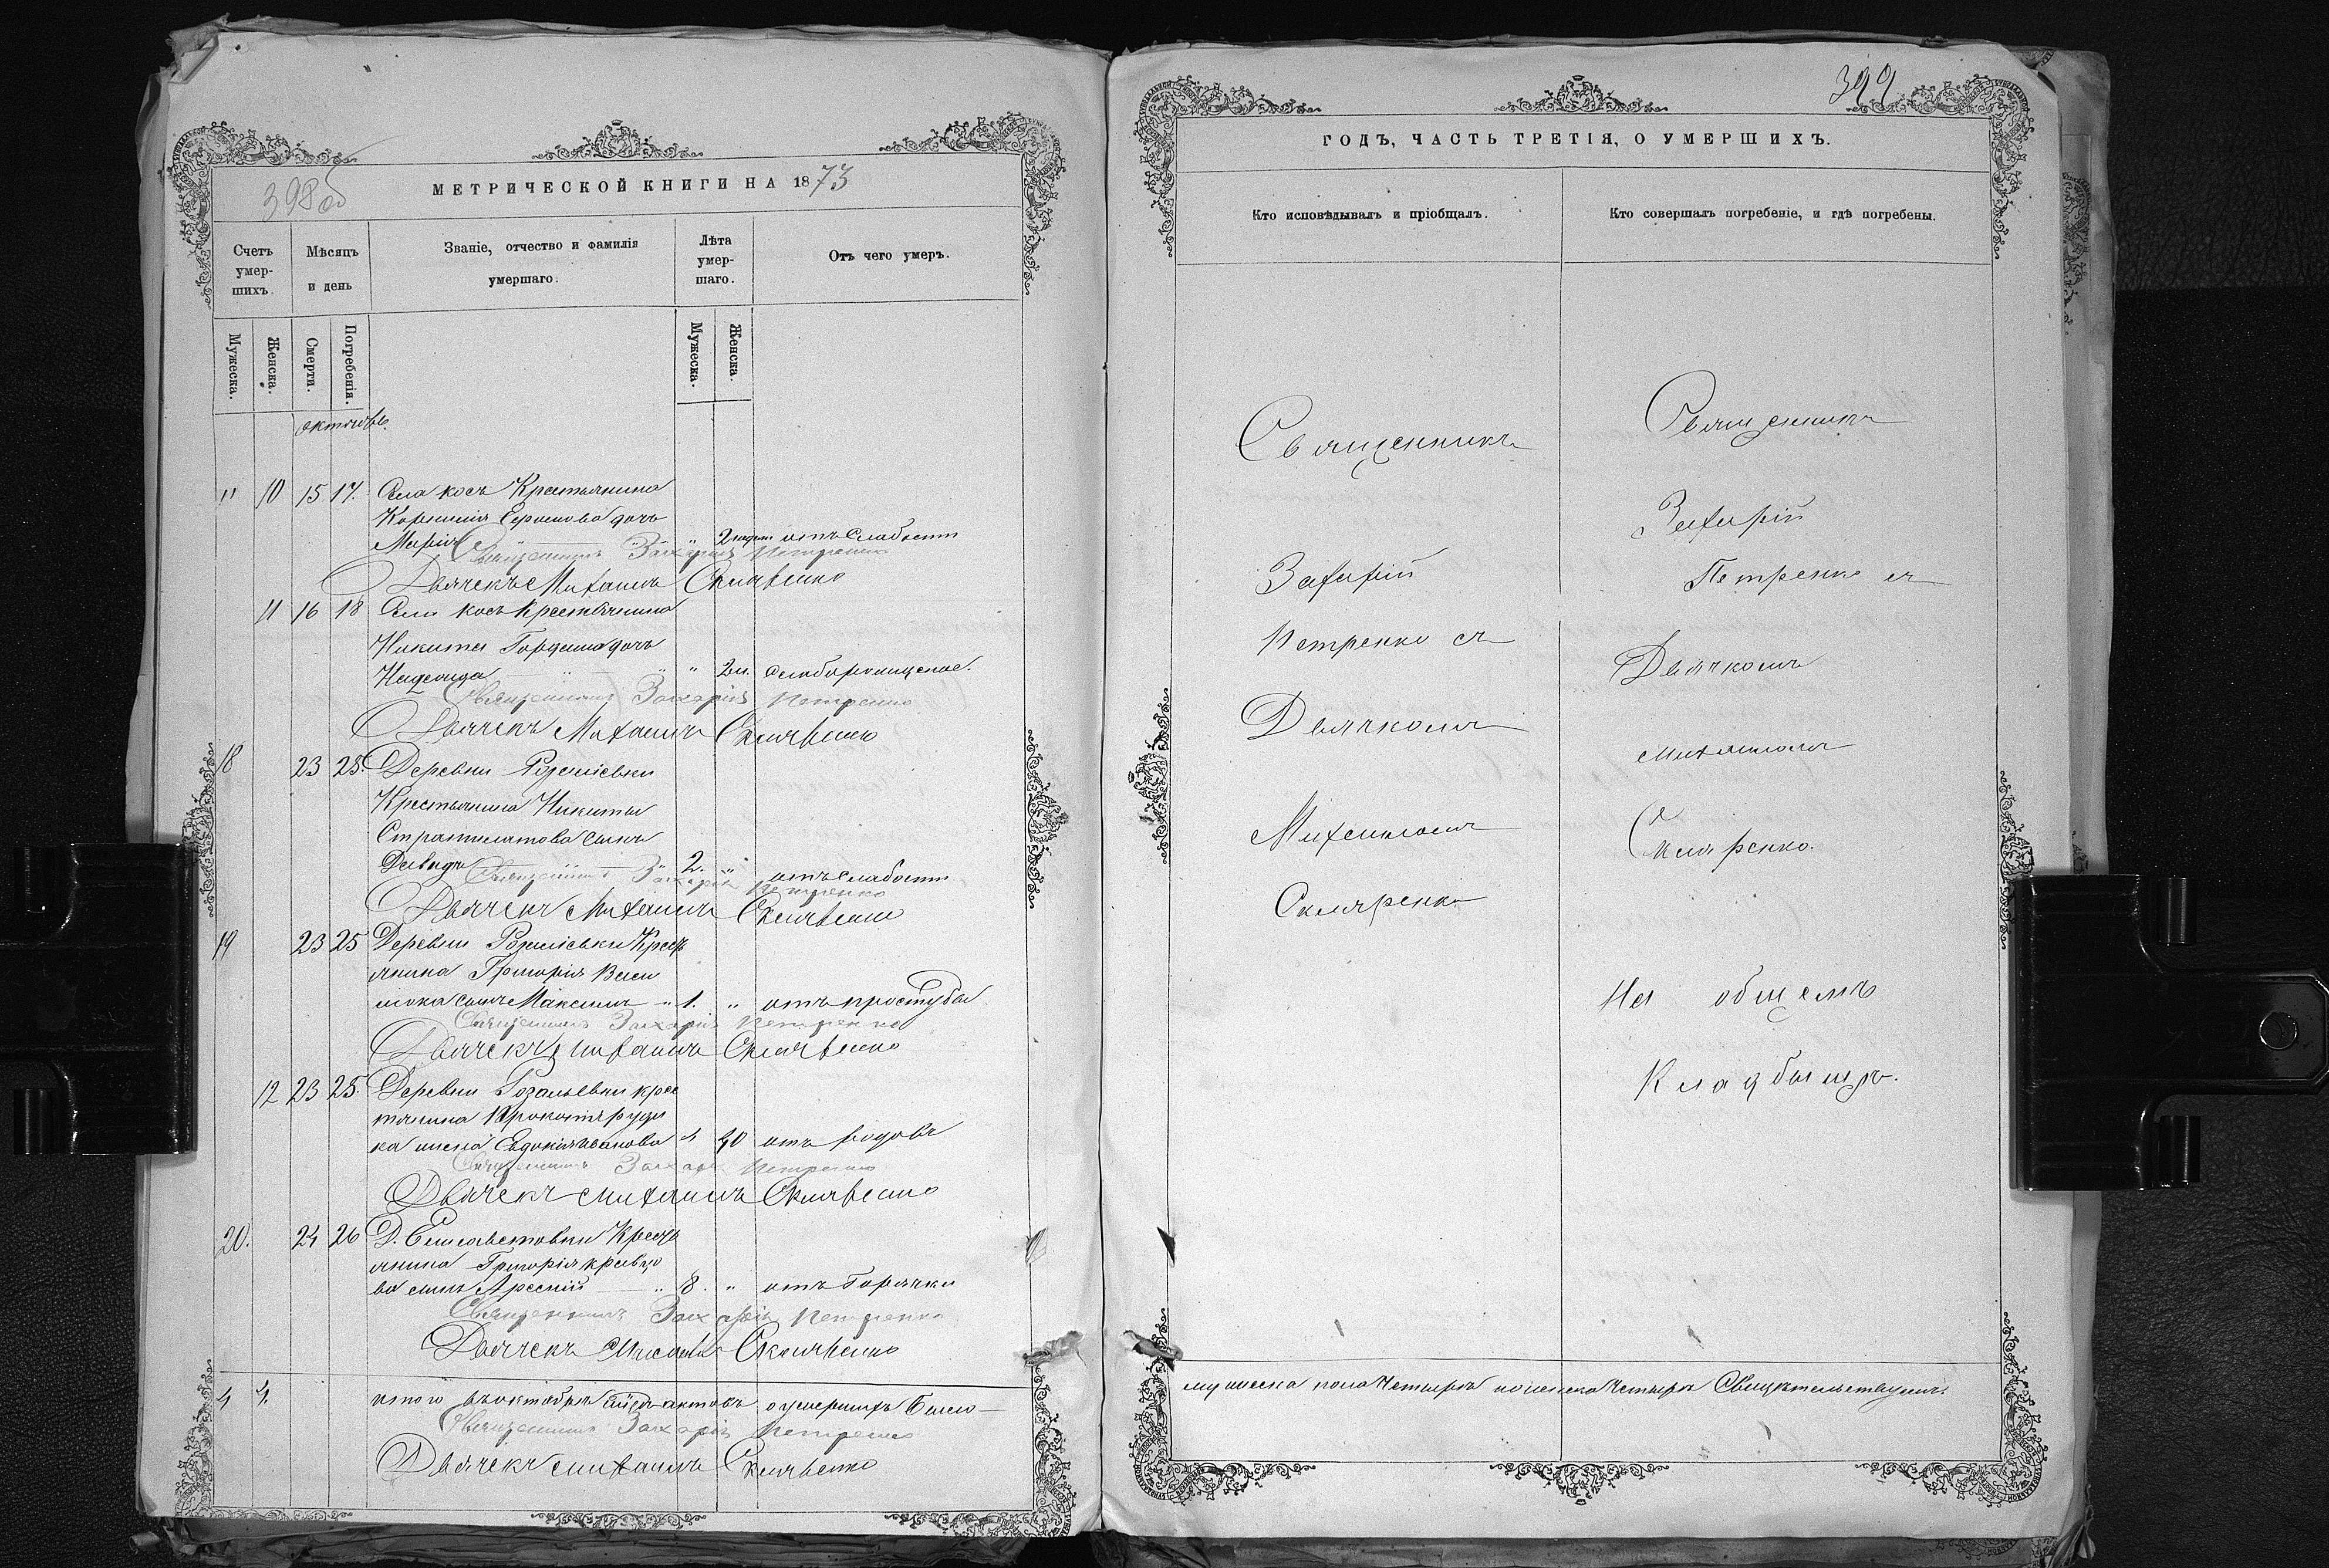 398 об
МЕТРИЧЕСКОЙ КНИГИ НА 1873
Счетъ умер-шихъ.
Мѣсяцъ и день
Званіе, отчество и фамилія умершаго.
Лѣта умер-шаго.
Отъ чего умеръ.
Мужеска.
Женска.
Смерти.
Погребенія.
Мужеска.
Женска.
октябрь.
" 10 15 17. Села Косъ Крестьянина
дочь
Марія " отъ слабости
Священникъ Захарія Петренко
Дьячекъ Михаилъ Скляренко
11 16 18 Села Косъ Крестьянина
Никиты Гордіенка дочь
Надежда " 2 м.
Священникъ Захарія Петренко
Дьячекъ Михаилъ Скляренко
18 23 25. Деревни
Крестьянина Никиты
Стратилатова сынъ
Давидъ 2. " отъ слабости
Священникъ Захарія Петренко
Дьячекъ Михаилъ Скляренко
19 23 25 Деревни Крест
янина Григорія Васи
люка сынъ Максимъ " 1. " отъ простуды
Священникъ Захарія Петренко
Дьячекъ Михаилъ Скляренко
12 23 25. Деревни крес
тянина Прокопія Руди
ка жена Евдокія Иванова " 40 отъ родовъ
Священникъ Захарія Петренко
Дьячекъ Михаилъ Скляренко
20. 24 26 Д. Елисаветовки Крест
янина Григорія Кривцо
ва сынъ Арсеній " 8. " отъ Горячки
Священникъ Захарія Петренко
Дьячекъ Михаилъ Скляренко
4 4. итого въ октябрѣ актовъ о умершихъ Было
Священникъ Захарія Петренко
Дьячекъ Михаилъ Скляренко
399
ГОДЪ, ЧАСТЬ ТРЕТІЯ, О УМЕРШИХЪ.
Кто исповѣдывалъ и пріобщалъ.
Кто совершалъ погребеніе, и гдѣ погребены.
Священникъ
Захарій
Петренко съ
Дьячкомъ
Михаиломъ
Скляренко
Священникъ
Захарій
Петренко съ
Дьячкомъ
Михаиломъ
Скляренко.
На общемъ
Кладбищѣ.
мужеска пола Четыре женска Четыре Свидѣтельствуемъ.